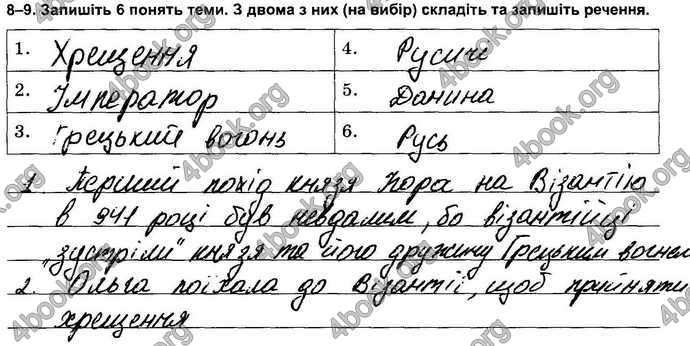 8–9. Запишіть 6 понять теми. З двома з них (на вибір) складіть та запишіть речення.
1. Хрещення
4. Русичі
2. Імператор
5. Данина
3. Грецький вогонь
6. Русь
1. Перший похід князя Ігора на Візантію
в 941 році був невдалим, бо візантійці
„зустріли" князя та його дружину Грецьким вогнем
2. Ольга поїхала до Візантії, щоб прийняти
хрещення
4book.org